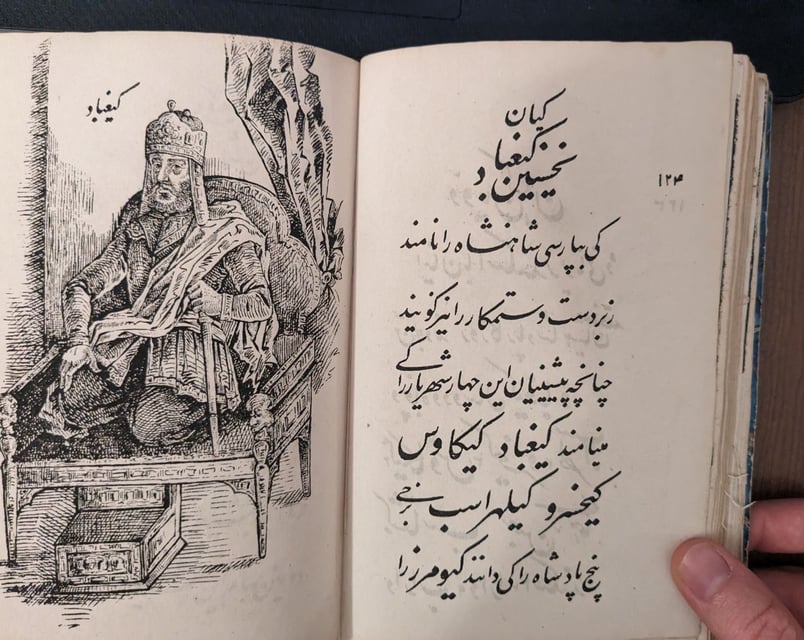 کیغباد
کیان
نخستین کیغباد
۱۲۴
کی بپارسی شاهنشاه را نامند
زبردست و ستمکار را نیز گویند
چنانچه پیشینیان این چهار شهریار را کی
مینامند کیغباد کیکاوس
کیخسرو کیلهراسب برخی
پنج پادشاه را کی دانند کیومرز را